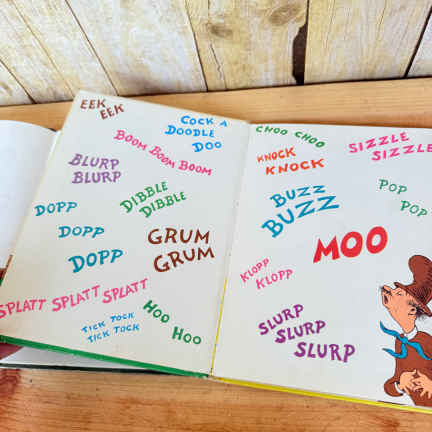 EEK
EEK
COCK A
DOODLE
DOO
BOOM BOOM BOOM
BLURP
BLURP
DIBBLE
DIBBLE
DOPP
DOPP
DOPP
GRUM
GRUM
SPLATT SPLATT SPLATT
TICK TOCK
TICK TOCK
HOO
HOO
CHOO CHOO
SIZZLE
SIZZLE
KNOCK
KNOCK
BUZZ
BUZZ
POP
POP
MOO
KLOPP
KLOPP
SLURP
SLURP
SLURP